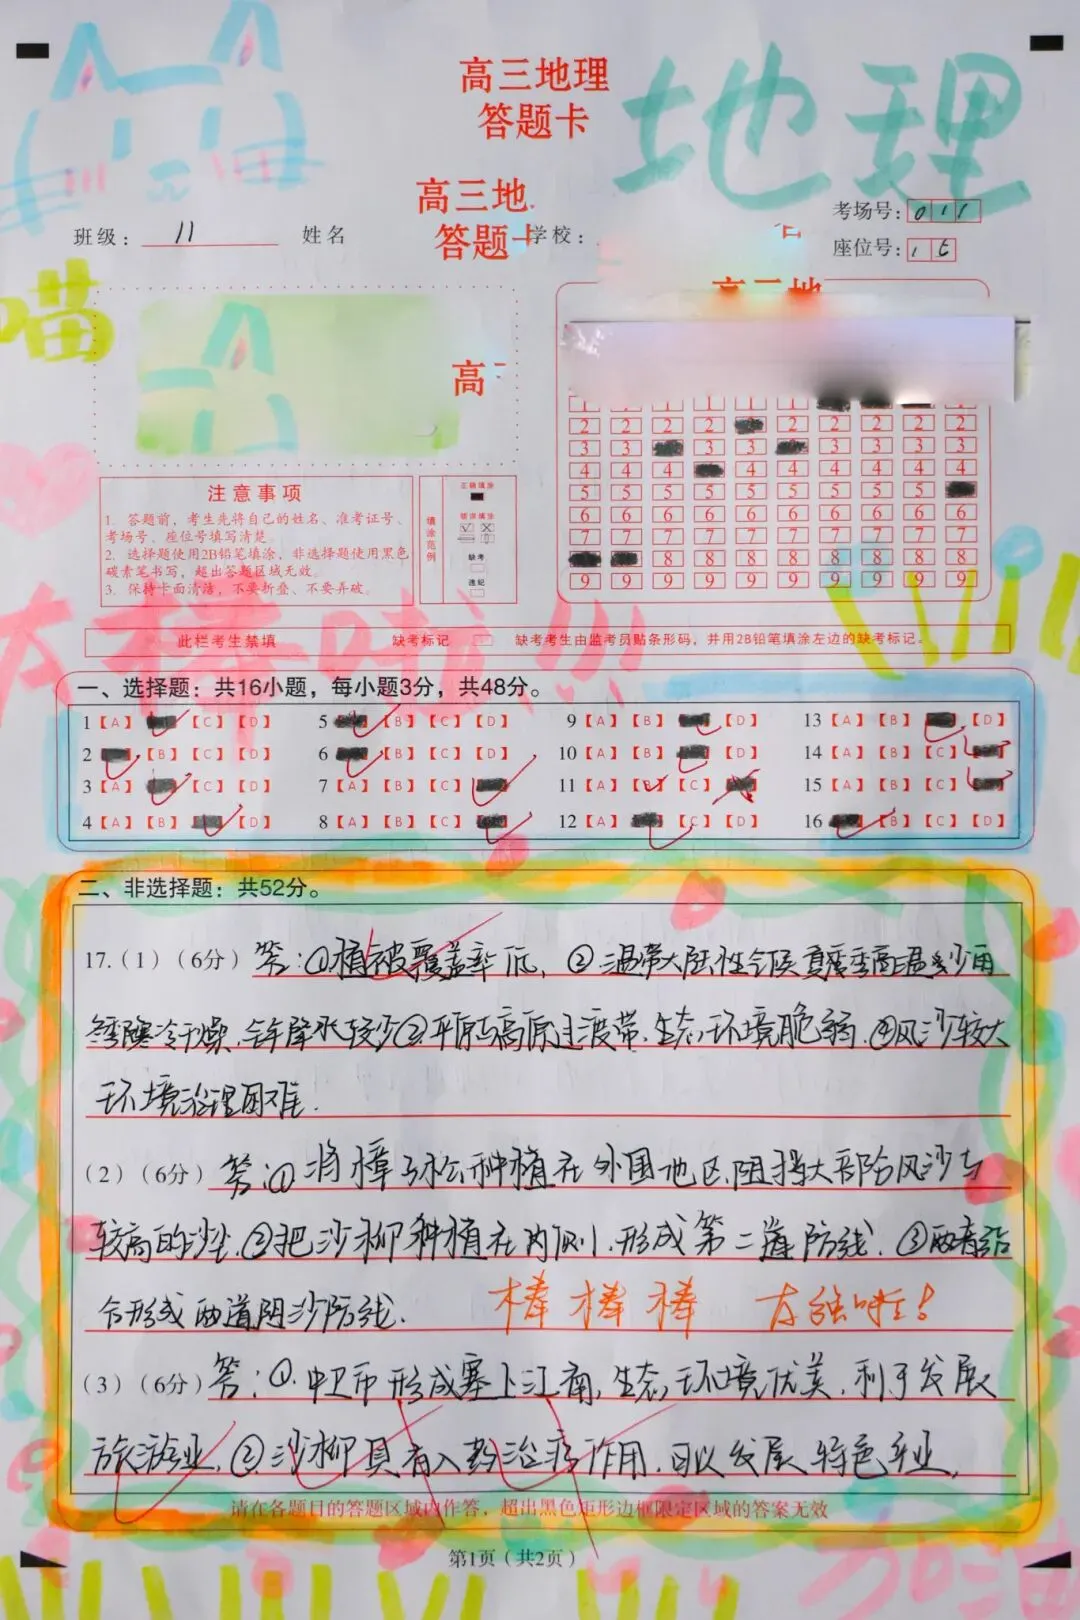 高三地理
答题卡
地理
高三地
答题卡
班级: 11 姓名 学校:
考场号: 011
座位号: 15
喵
高三地
高三
注意事项
1. 答题前,考生先将自己的姓名、准考证号、
考场号、座位号填写清楚。
2. 选择题使用2B铅笔填涂,非选择题使用黑色
碳素笔书写,超出答题区域无效。
3. 保持卡面清洁,不要折叠、不要弄破。
填涂范例
正确填涂
错误填涂
缺考
违纪
1 1 1 1 1
2 2 2 2 2 2 2 2 2
3 3 3 3 3 3 3 3
4 4 4 4 4 4 4 4 4
5 5 5 5 5 5 5 5 5
6 6 6 6 6 6 6 6 6 6
7 7 7 7 7 7 7 7 7 7
8 8 8 8 8 8 8 8
9 9 9 9 9 9 9 9 9 9
此栏考生禁填 缺考标记 缺考考生由监考员贴条形码,并用2B铅笔填涂左边的缺考标记。
太棒啦!!!
一、选择题:共16小题,每小题3分,共48分。
1【A】【C】【D】 5【B】【C】【D】 9【A】【B】【D】 13【A】【B】【D】
2【B】【C】【D】 6【B】【C】【D】 10【A】【B】【D】 14【A】【B】【C】
3【A】【C】【D】 7【A】【B】【C】 11【A】【B】【C】 15【A】【B】【C】
4【A】【B】【D】 8【A】【B】【C】 12【A】【C】【D】 16【B】【C】【D】
二、非选择题:共52分。
17.(1)(6分)答:①植被覆盖率低,②温带大陆性气候夏季高温少雨
冬季寒冷干燥,全年降水较少③平原与高原过渡带,生态环境脆弱.④风沙较大
环境治理困难.
(2)(6分)答:①将樟子松种植在外围地区,阻挡大部分风沙与
较高的沙尘.②把沙柳种植在内侧,形成第二道防线.③两者结
合形成两道阻沙防线.
棒棒棒 太强啦!
(3)(6分)答:①.中卫市形成塞上江南,生态环境优美,利于发展
旅游业,②.沙柳具有入药治疗作用,可以发展特色产业,
请在各题目的答题区域内作答,超出黑色矩形边框限定区域的答案无效
第1页(共2页)
加油